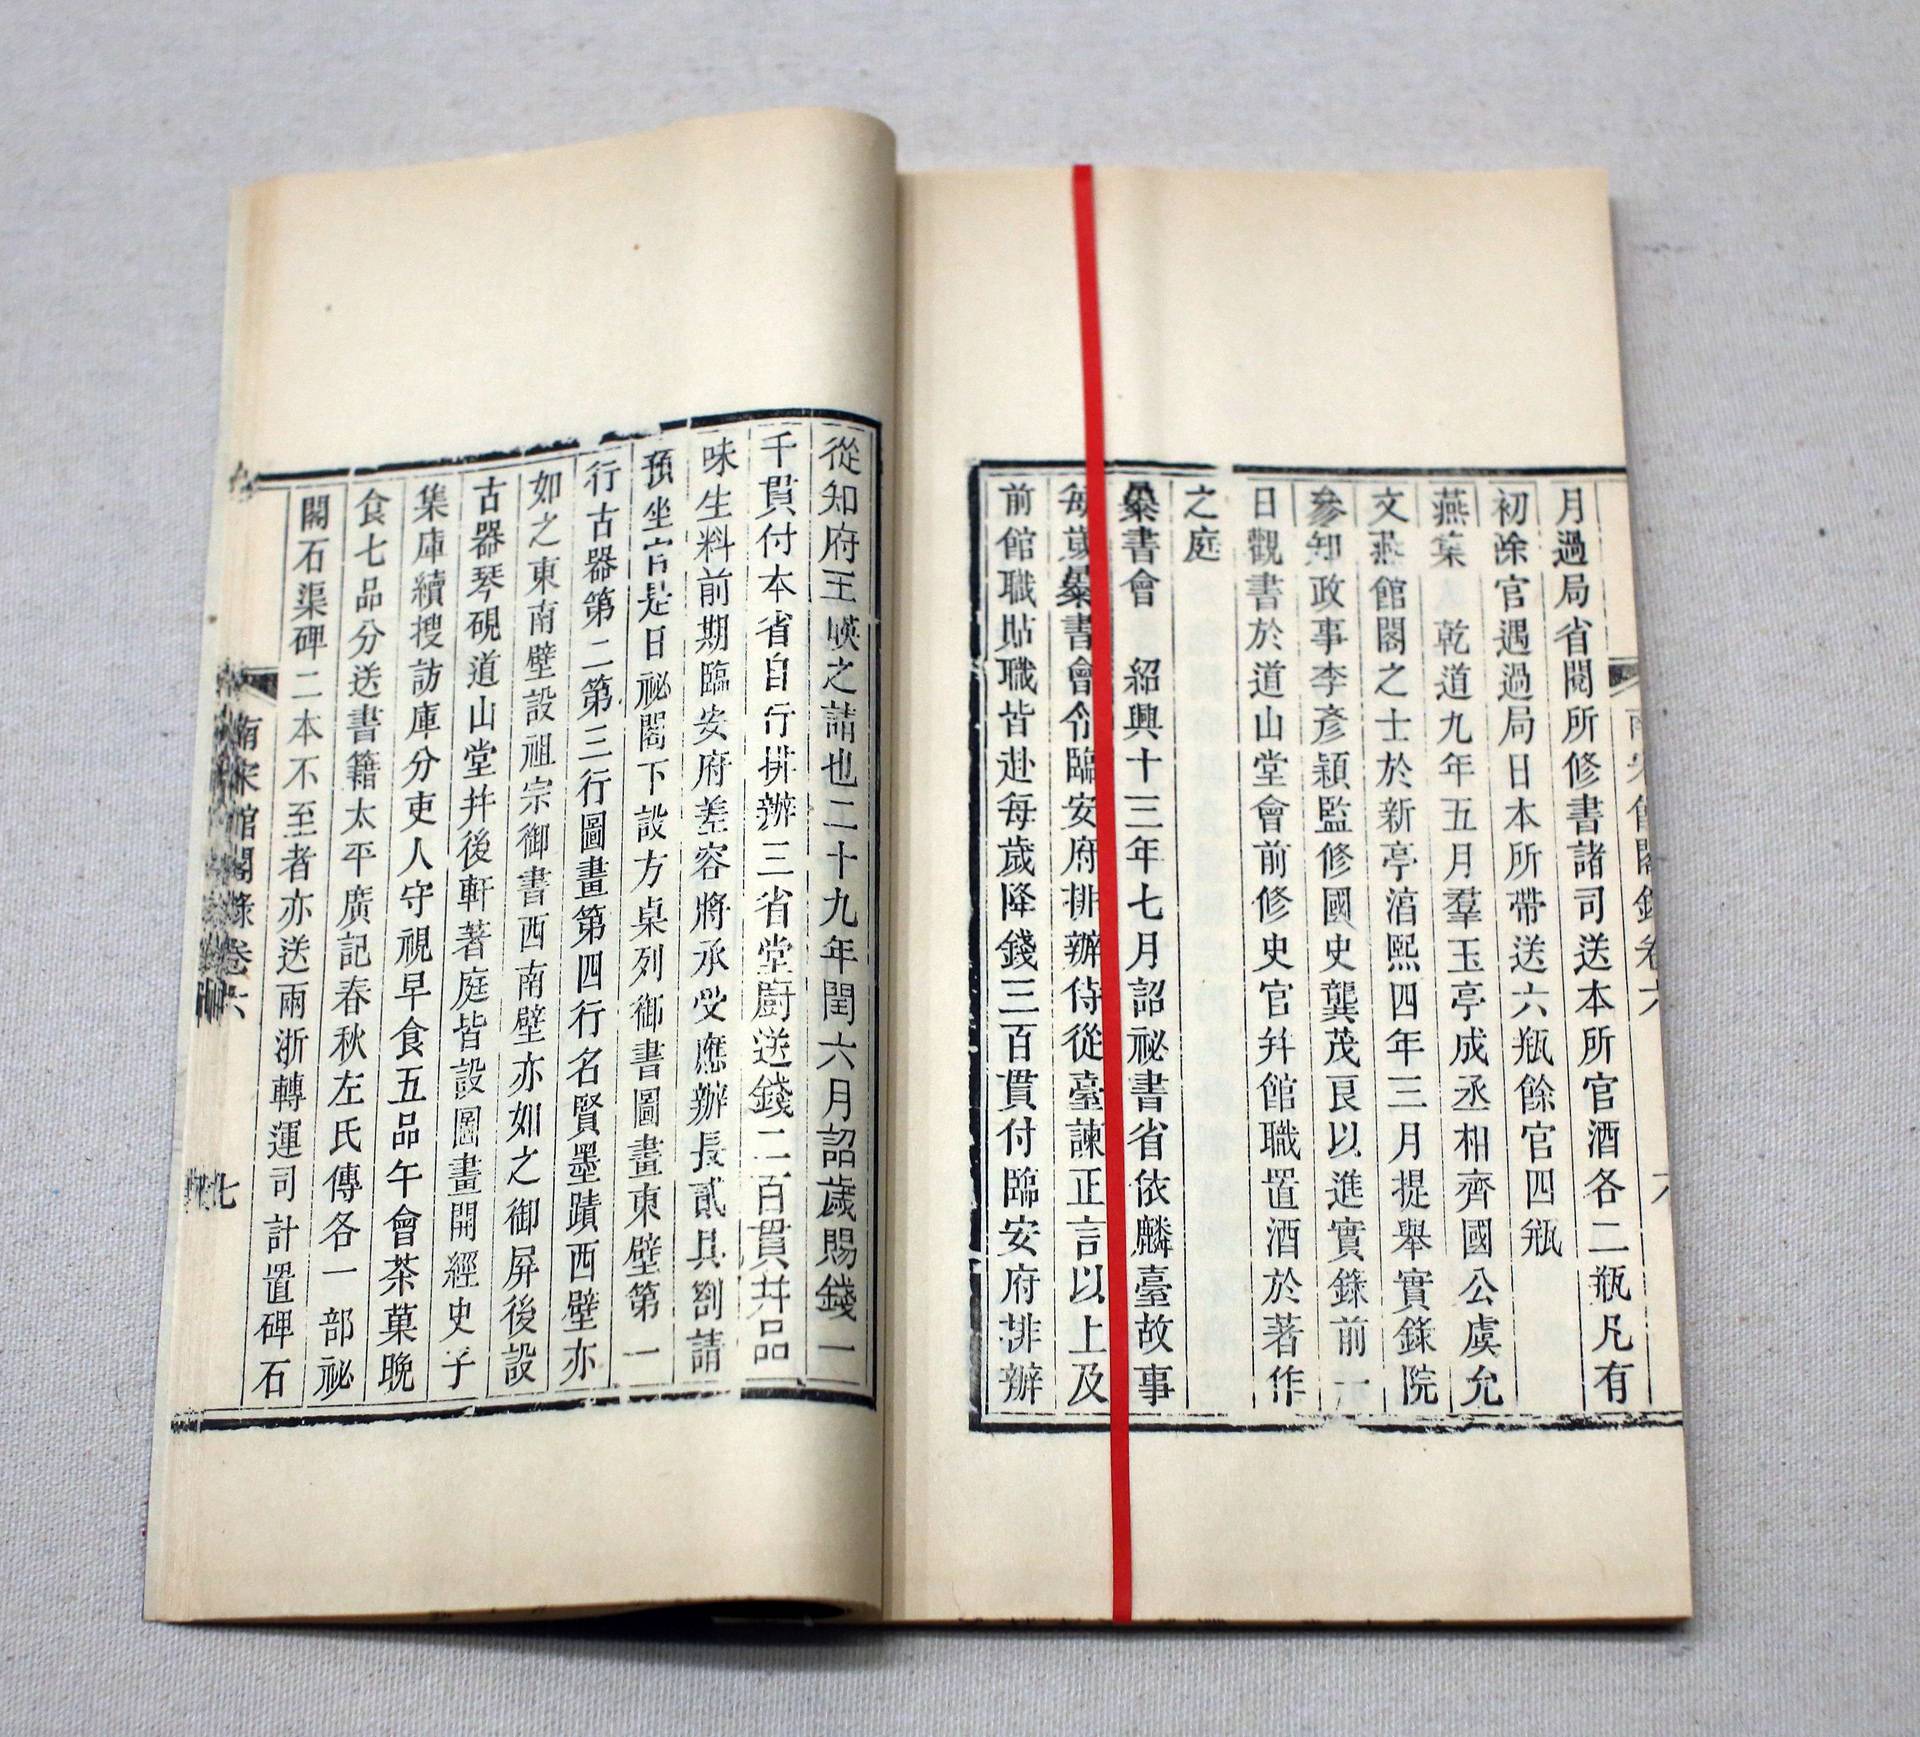 南宋館閣錄卷六
六
月過局省閱所修書諸司送本所官酒各二瓶凡有
初除官遇過局日本所帶送六瓶餘官四瓶
燕集 乾道九年五月羣玉亭成丞相齊國公虞允
文燕館閣之士於新亭湻熙四年三月提舉實錄院
參知政事李彥穎監修國史龔茂良以進實錄前一
日觀書於道山堂會前修史官幷館職置酒於著作
之庭
㬥書會 紹興十三年七月詔祕書省依麟臺故事
每歲㬥書會令臨安府排辦侍從臺諫正言以上及
前館職貼職皆赴每歲降錢三百貫付臨安府排辦
從知府王㬇之請也二十九年閏六月詔歲賜錢一
千貫付本省自行排辦三省堂廚送錢二百貫幷品
味生料前期臨安府差容將承受應辦長貳具劄請
預坐官是日祕閣下設方桌列御書圖畫東壁第一
行古器第二第三行圖畫第四行名賢墨蹟西壁亦
如之東南壁設祖宗御書西南壁亦如之御屏後設
古器琴硯道山堂幷後軒著庭皆設圖畫開經史子
集庫續搜訪庫分吏人守視早食五品午會茶菓晚
食七品分送書籍太平廣記春秋左氏傳各一部祕
閣石渠碑二本不至者亦送兩浙轉運司計置碑石
南宋館閣錄卷六
七